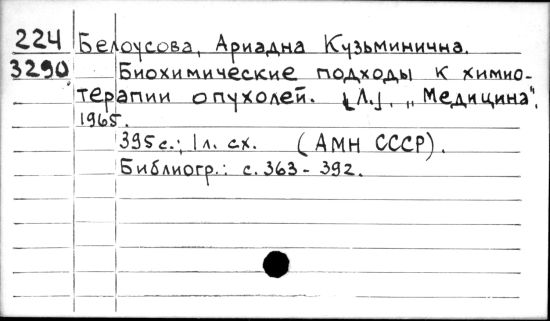 224 Белоусова, Ариадна Кузьминична.
3290 Биохимические подходы к химио-
терапии опухолей. [Л.], „Медицина",
1965.
395 с.; 1 л. сх. (АМН СССР).
Библиогр.: с. 363 - 392.